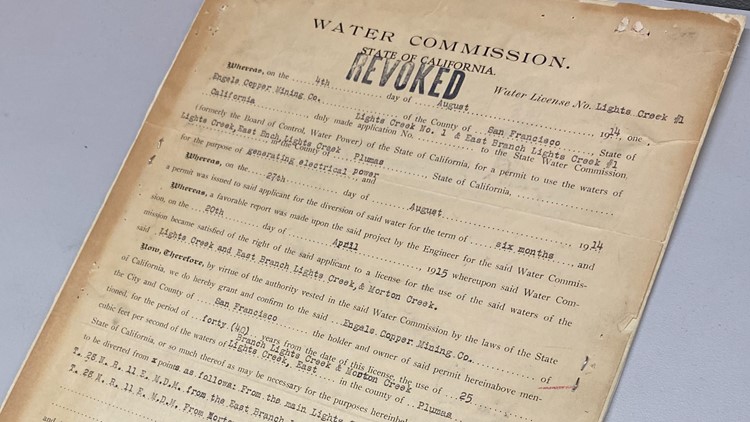 WATER COMMISSION.
STATE OF CALIFORNIA.
REVOKED
Water License No. Lights Creek #1
Whereas, on the 4th day of August 1914 one
Engels Copper Mining Co. of the County of San Francisco State of
California duly made application No. Lights Creek No. 1 & East Branch Lights Creek #1 to the State Water Commission,
(formerly the Board of Control, Water Power) of the State of California, for a permit to use the waters of
Lights Creek, East Bnch Lights Creek in the County of Plumas State of California,
for the purpose of generating electrical power and
Whereas, on the 27th day of August 1914
a permit was issued to said applicant for the diversion of said water for the term of six months and
Whereas, a favorable report was made upon the said project by the Engineer for the said Water Commis-
sion, on the 20th day of April 1915 whereupon said Water Com-
mission became satisfied of the right of the said applicant to a license for the use of the said waters of the
said Lights Creek and East Branch Lights Creek, & Morton Creek.
Now, Therefore, by virtue of the authority vested in the said Water Commission by the laws of the State
of California, we do hereby grant and confirm to the said Engels Copper Mining Co. of
the City and County of San Francisco the holder and owner of said permit hereinabove men-
tioned, for the period of forty (40) years from the date of this license, the use of 25
cubic feet per second of the waters of Lights Creek, East Branch Lights Creek & Morton Creek in the county of Plumas
State of California, or so much thereof as may be necessary for the purposes
to be diverted from points as follows: From the main Lights
T. 28 N. R. 11 E. M.D.M. from the East Branch
T. 28 N. R. 11 E. M.D.M. From
and